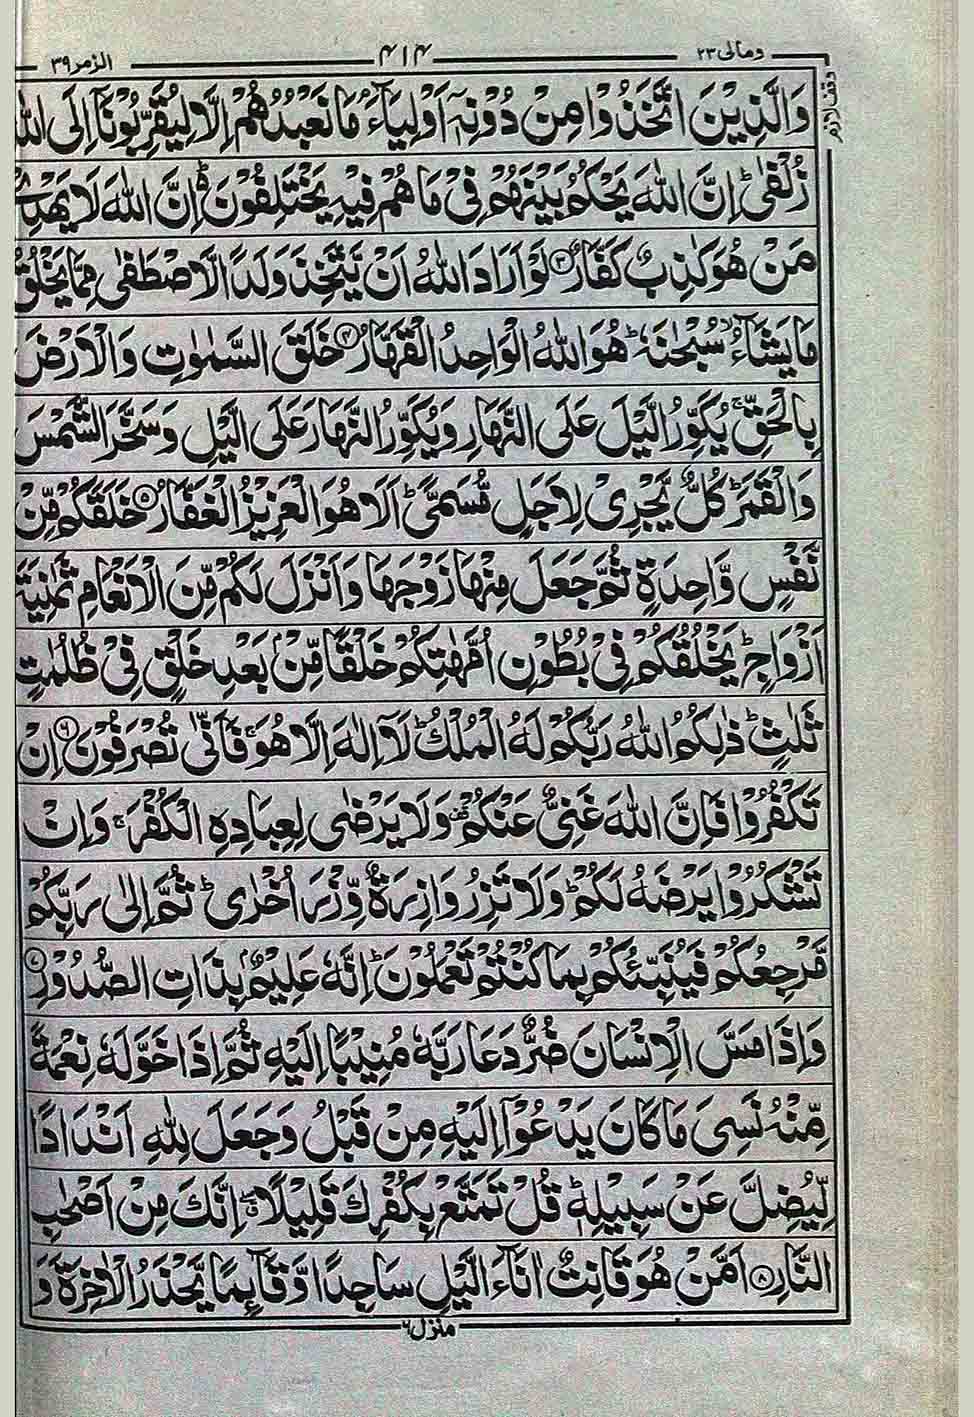 ومالی ۲۳ ۴۱۴ الزمر ۳۹
وقف لازم
وَالَّذِیْنَ اتَّخَذُوْا مِنْ دُوْنِهٖۤ اَوْلِیَآءَ ۘ مَا نَعْبُدُهُمْ اِلَّا لِیُقَرِّبُوْنَاۤ اِلَی اللّٰهِ
زُلْفٰی ؕ اِنَّ اللّٰهَ یَحْكُمُ بَیْنَهُمْ فِیْ مَا هُمْ فِیْهِ یَخْتَلِفُوْنَ ؕ۬ اِنَّ اللّٰهَ لَا یَهْدِیْ
مَنْ هُوَ كٰذِبٌ كَفَّارٌ ۳ لَوْ اَرَادَ اللّٰهُ اَنْ یَّتَّخِذَ وَلَدًا لَّاصْطَفٰی مِمَّا یَخْلُقُ
مَا یَشَآءُ ۙ سُبْحٰنَهٗ ؕ هُوَ اللّٰهُ الْوَاحِدُ الْقَهَّارُ ۴ خَلَقَ السَّمٰوٰتِ وَالْاَرْضَ
بِالْحَقِّ ۚ یُكَوِّرُ الَّیْلَ عَلَی النَّهَارِ وَیُكَوِّرُ النَّهَارَ عَلَی الَّیْلِ وَسَخَّرَ الشَّمْسَ
وَالْقَمَرَ ؕ كُلٌّ یَّجْرِیْ لِاَجَلٍ مُّسَمًّی ؕ اَلَا هُوَ الْعَزِیْزُ الْغَفَّارُ ۵ خَلَقَكُمْ مِّنْ
نَّفْسٍ وَّاحِدَةٍ ثُمَّ جَعَلَ مِنْهَا زَوْجَهَا وَاَنْزَلَ لَكُمْ مِّنَ الْاَنْعَامِ ثَمٰنِیَةَ
اَزْوَاجٍ ؕ یَخْلُقُكُمْ فِیْ بُطُوْنِ اُمَّهٰتِكُمْ خَلْقًا مِّنْۢ بَعْدِ خَلْقٍ فِیْ ظُلُمٰتٍ
ثَلٰثٍ ؕ ذٰلِكُمُ اللّٰهُ رَبُّكُمْ لَهُ الْمُلْكُ ؕ لَاۤ اِلٰهَ اِلَّا هُوَ ۚ فَاَنّٰی تُصْرَفُوْنَ ۶ اِنْ
تَكْفُرُوْا فَاِنَّ اللّٰهَ غَنِیٌّ عَنْكُمْ ۫ وَلَا یَرْضٰی لِعِبَادِهِ الْكُفْرَ ۚ وَاِنْ
تَشْكُرُوْا یَرْضَهُ لَكُمْ ؕ وَلَا تَزِرُ وَازِرَةٌ وِّزْرَ اُخْرٰی ؕ ثُمَّ اِلٰی رَبِّكُمْ
مَّرْجِعُكُمْ فَیُنَبِّئُكُمْ بِمَا كُنْتُمْ تَعْمَلُوْنَ ؕ اِنَّهٗ عَلِیْمٌۢ بِذَاتِ الصُّدُوْرِ ۷
وَاِذَا مَسَّ الْاِنْسَانَ ضُرٌّ دَعَا رَبَّهٗ مُنِیْبًا اِلَیْهِ ثُمَّ اِذَا خَوَّلَهٗ نِعْمَةً
مِّنْهُ نَسِیَ مَا كَانَ یَدْعُوْۤا اِلَیْهِ مِنْ قَبْلُ وَجَعَلَ لِلّٰهِ اَنْدَادًا
لِّیُضِلَّ عَنْ سَبِیْلِهٖ ؕ قُلْ تَمَتَّعْ بِكُفْرِكَ قَلِیْلًا ۖۗ اِنَّكَ مِنْ اَصْحٰبِ
النَّارِ ۸ اَمَّنْ هُوَ قَانِتٌ اٰنَآءَ الَّیْلِ سَاجِدًا وَّقَآئِمًا یَّحْذَرُ الْاٰخِرَةَ وَ
منزل ۶